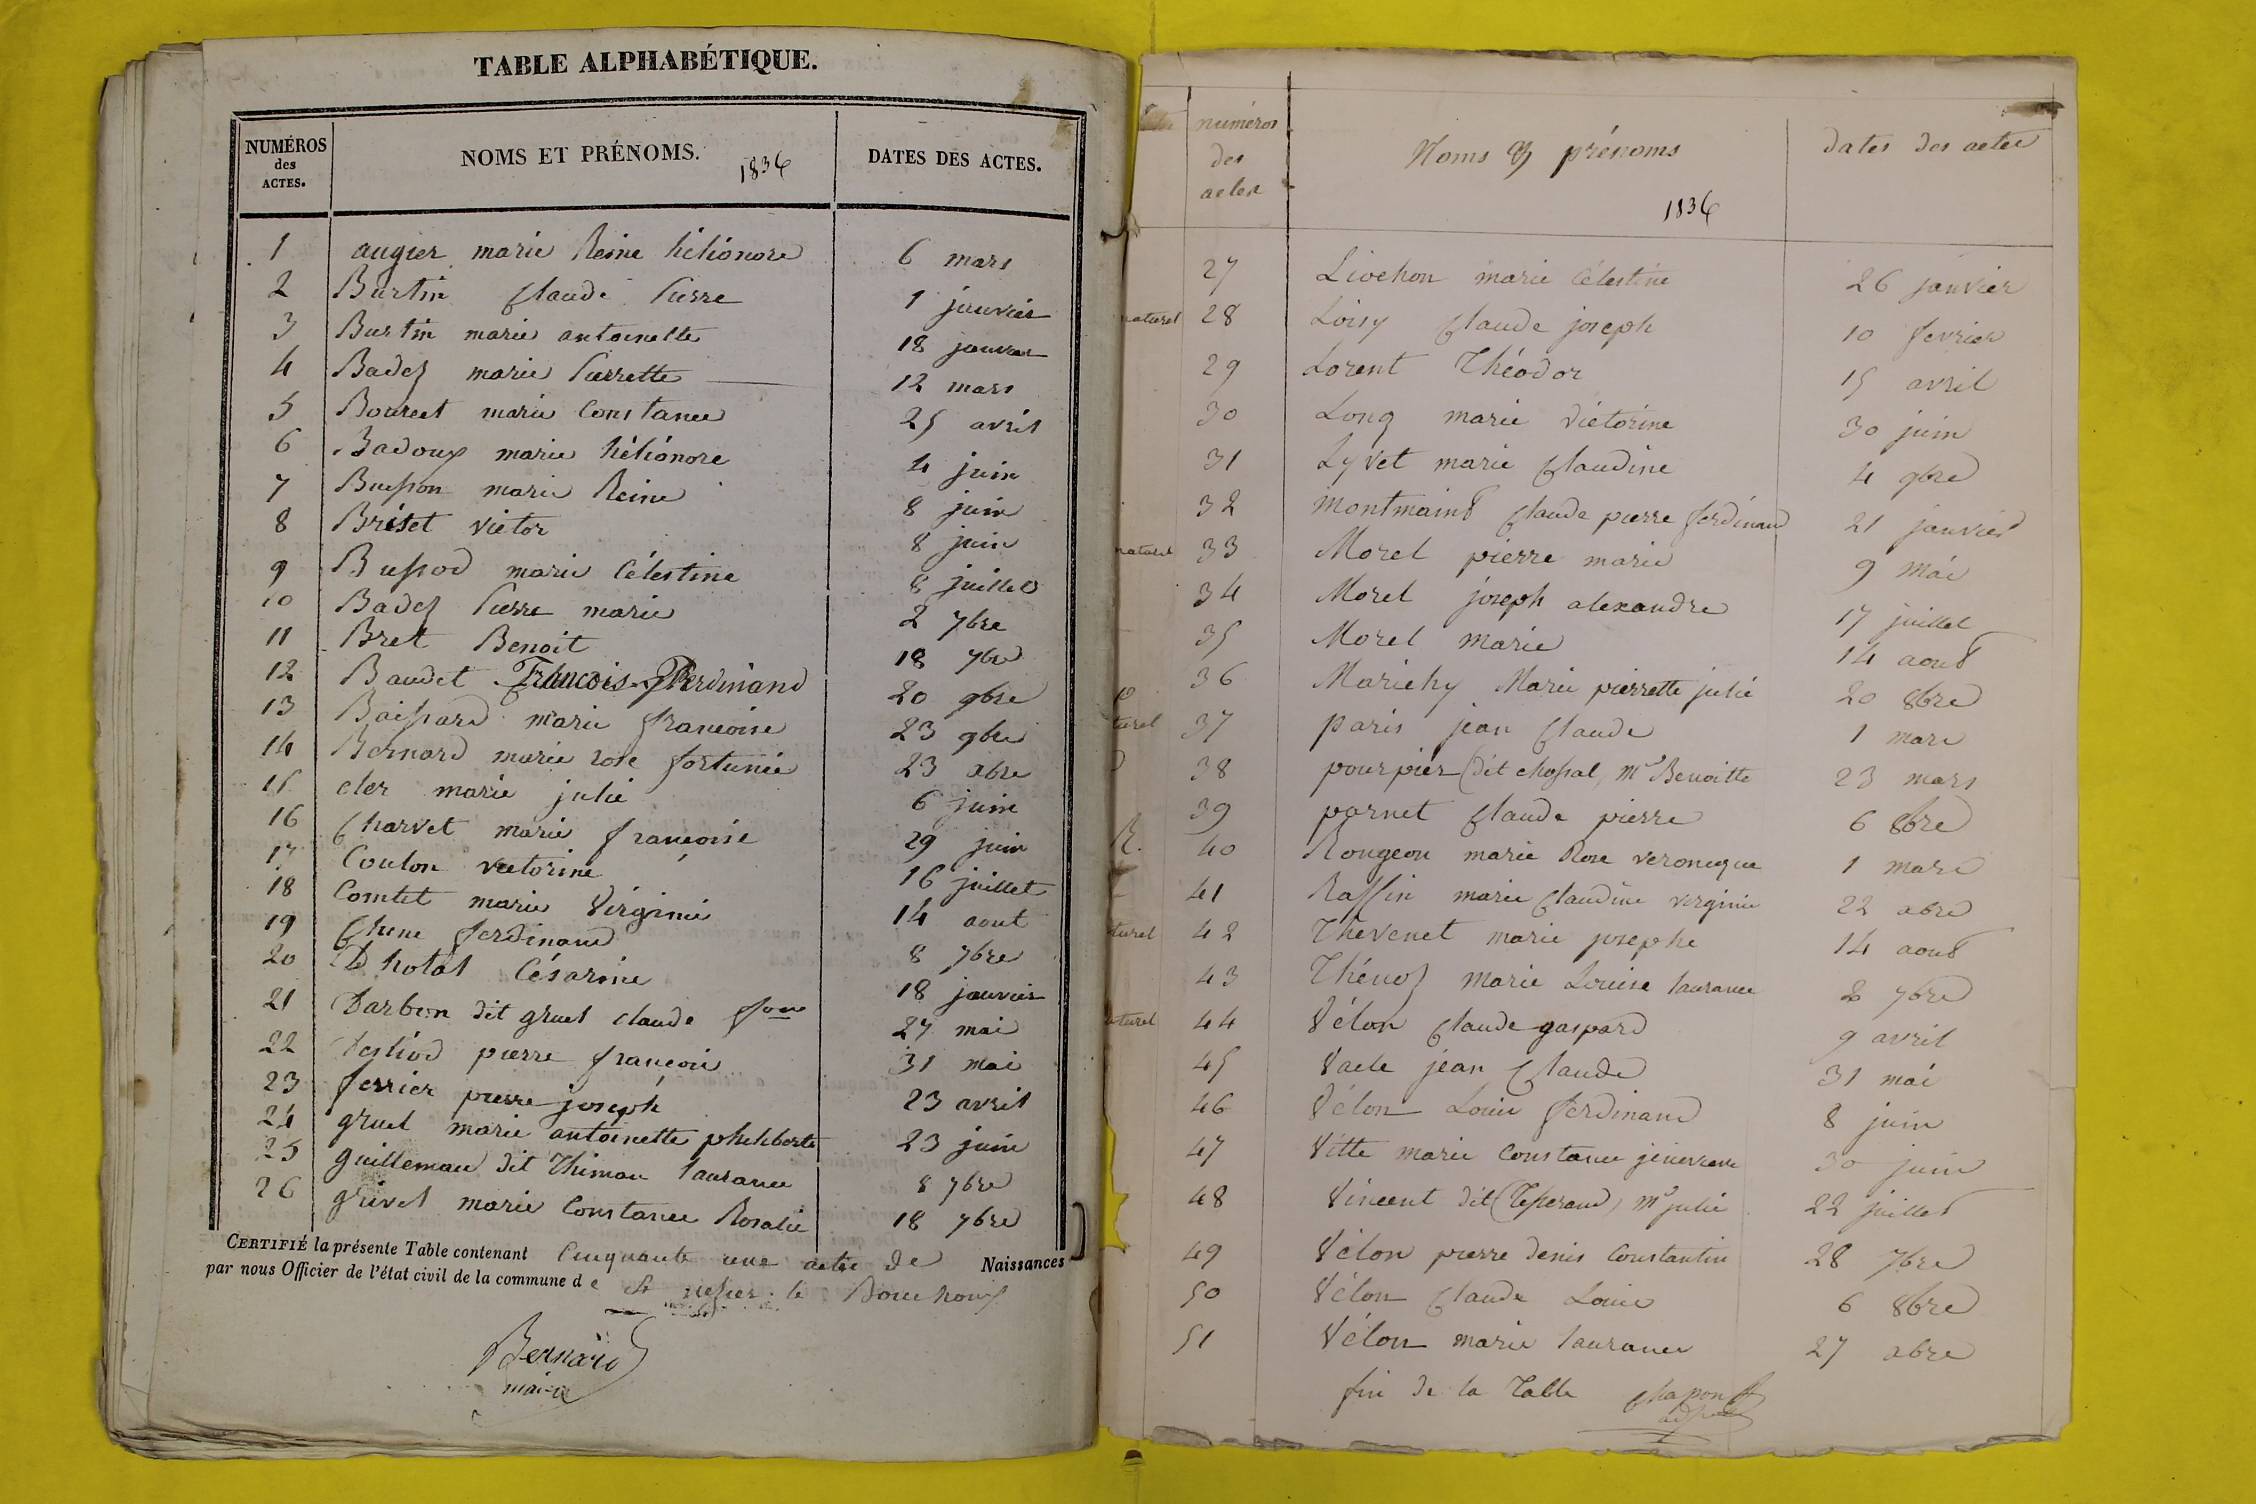 TABLE ALPHABÉTIQUE.
NUMÉROS des ACTES. NOMS ET PRÉNOMS. 1836 DATES DES ACTES.
1 augier marie Reine héliónore 6 mars
2 Burtin Claude Pierre 1 janvier
3 Burtin marie antoinette 18 janvier
4 Badez marie Pierrette 12 mars
5 Bourcet marie Constance 25 avril
6 Badoux marie héliónore 4 juin
7 Buisson marie Reine 8 juin
8 Briset victor 8 juin
9 Bussod marie Célestine 8 juillet
10 Badez Pierre marie 2 7bre
11 Bret Benoit 18 7bre
12 Baudet François Ferdinand 20 9bre
13 Baissard marie françoise 23 9bre
14 Bernard marie rose fortunée 23 xbre
15 cler marie julie 6 juin
16 Charvet marie françoise 29 juin
17 Coulon victorine 16 juillet
18 Comtet marie Virginie 14 aout
19 Chene ferdinand 8 7bre
20 Dhotal Césarine 18 janvier
21 Darbon dit gruel claude 27 mai
22 pierre françois 31 mai
23 ferrier pierre joseph 23 avril
24 gruel marie antoinette philiberte 23 juin
25 guillemau dit Thimon laurance 8 7bre
26 grivel marie Constance Rosalie 18 7bre
CERTIFIÉ la présente Table contenant Cinquante une actes de Naissances
par nous Officier de l'état civil de la commune de St le Bouchoux
Bernard
maire
numéros des actes Noms & prénoms 1836 dates des actes
27 Liochon marie Célestine 26 janvier
naturel 28 Loisy Claude joseph 10 fevrier
29 Lorent Théodor 15 avril
30 Long marie victorine 30 juin
31 Lyvet marie Claudine 4 9bre
32 Montmaint Claude pierre ferdinand 21 janvier
naturel 33 Morel pierre marie 9 mai
34 Morel joseph alexandre 17 juillet
35 Morel marie 14 aout
36 Marichy Marie pierrette julie 20 8bre
turel 37 paris jean Claude 1 mars
38 pourpier (dit chossal) Mie Benoitte 23 mars
39 parnet Claude pierre 6 8bre
R. 40 Rougeon marie Rose veronique 1 mars
41 Raffin marie Claudine virginie 22 xbre
turel 42 Thevenet marie josephe 14 aout
43 Thénoz marie Louise laurance 2 7bre
aturel 44 Vélon Claude gaspard 9 avril
45 Vacle jean Claude 31 mai
46 Vélon Louis ferdinand 8 juin
47 Vitte marie Constance jeneveve 30 juin
48 Vincent dit Mie julie 22 juillet
49 Vélon pierre denis Constantin 28 7bre
50 Vélon Claude Louis 6 8bre
51 Vélon marie laurance 27 xbre
fin de la Table Chapon